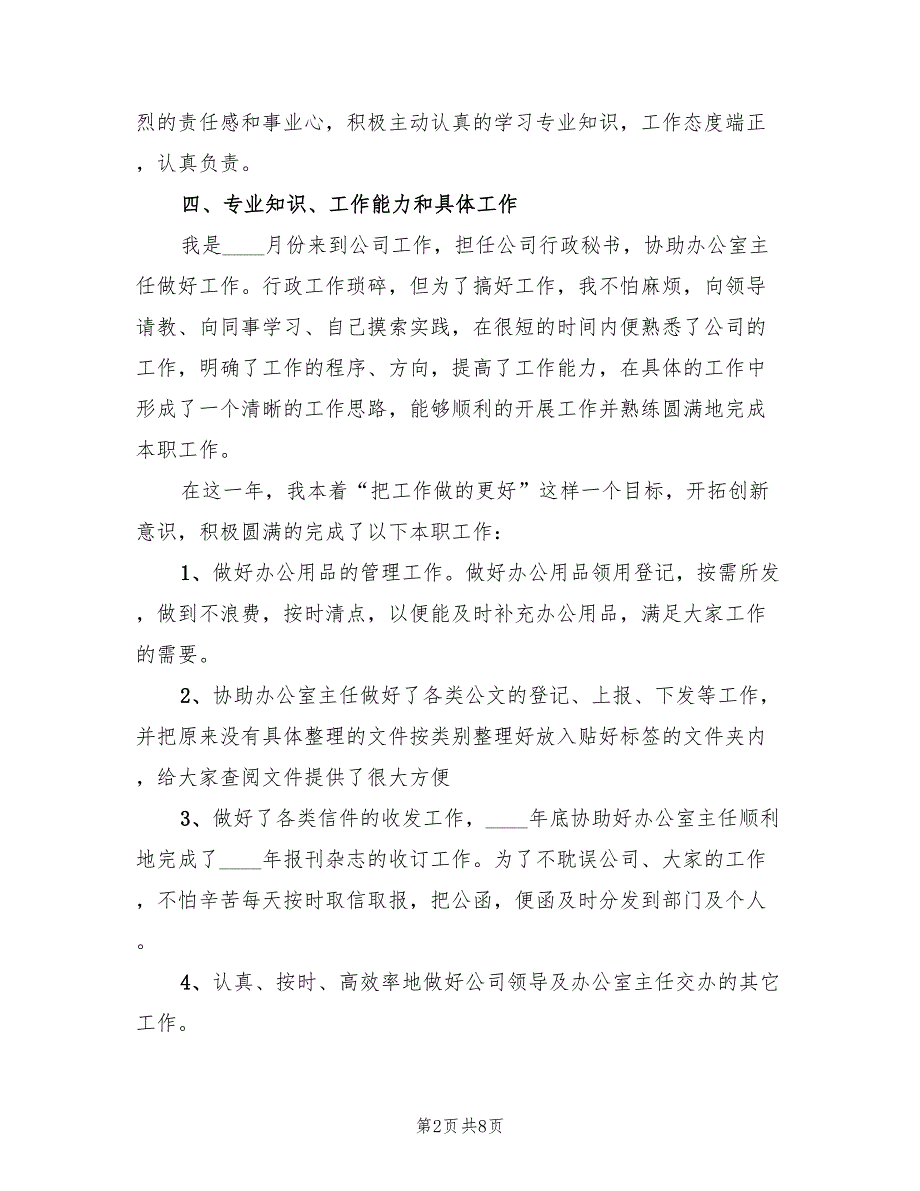 烈的责任感和事业心，积极主动认真的学习专业知识，工作态度端正
，认真负责。
四、专业知识、工作能力和具体工作
我是____月份来到公司工作，担任公司行政秘书，协助办公室主
任做好工作。行政工作琐碎，但为了搞好工作，我不怕麻烦，向领导
请教、向同事学习、自己摸索实践，在很短的时间内便熟悉了公司的
工作，明确了工作的程序、方向，提高了工作能力，在具体的工作中
形成了一个清晰的工作思路，能够顺利的开展工作并熟练圆满地完成
本职工作。
在这一年，我本着“把工作做的更好”这样一个目标，开拓创新
意识，积极圆满的完成了以下本职工作：
1、做好办公用品的管理工作。做好办公用品领用登记，按需所发
，做到不浪费，按时清点，以便能及时补充办公用品，满足大家工作
的需要。
2、协助办公室主任做好了各类公文的登记、上报、下发等工作，
并把原来没有具体整理的文件按类别整理好放入贴好标签的文件夹内
，给大家查阅文件提供了很大方便
3、做好了各类信件的收发工作，____年底协助好办公室主任顺利
地完成了____年报刊杂志的收订工作。为了不耽误公司、大家的工作
，不怕辛苦每天按时取信取报，把公函，便函及时分发到部门及个人
。
4、认真、按时、高效率地做好公司领导及办公室主任交办的其它
工作。
第2页 共8页